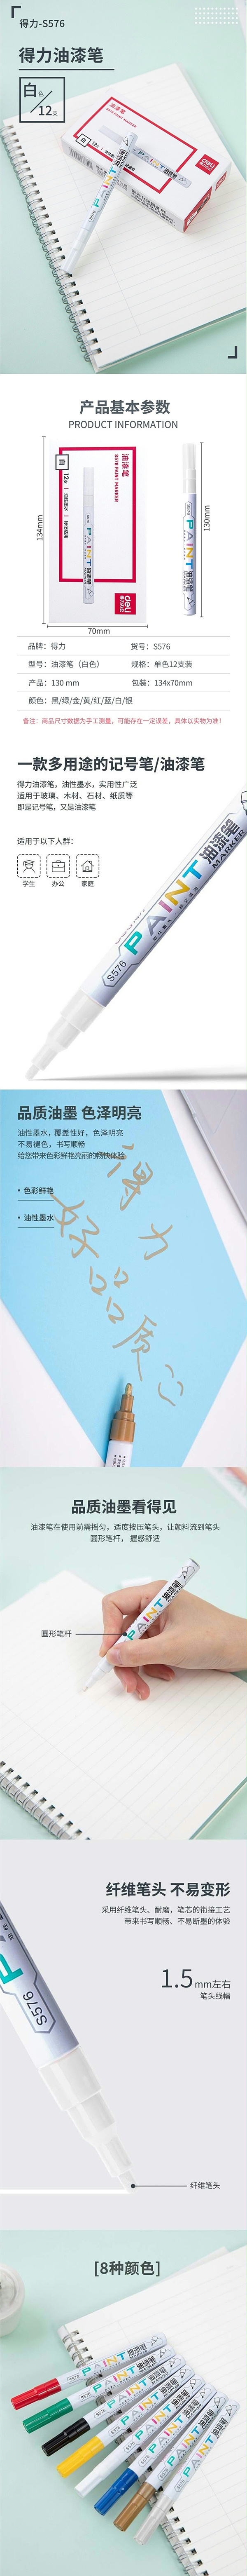 得力-S576
得力油漆笔
白色/12支
油漆笔
S576 PAINT MARKER
deli
得力
产品基本参数
PRODUCT INFORMATION
134mm
白
12支
油漆笔
S576 PAINT MARKER
deli
得力办公
S576
PAINT
油漆笔
MARKER
130mm
70mm
品牌：得力
货号：S576
型号：油漆笔（白色）
规格：单色12支装
产品：130 mm
包装：134x70mm
颜色：黑/绿/金/黄/红/蓝/白/银
备注：商品尺寸数据为手工测量，可能存在一定误差，具体以实物为准！
一款多用途的记号笔/油漆笔
得力油漆笔，油性墨水，实用性广泛
适用于玻璃、木材、石材、纸质等
即是记号笔，又是油漆笔
适用于以下人群：
学生
办公
家庭
S576
PAINT
油漆笔
MARKER
品质油墨 色泽明亮
油性墨水，覆盖性好，色泽明亮
不易褪色，书写顺畅
给您带来色彩鲜艳亮丽的畅快体验
• 色彩鲜艳
• 油性墨水
得力
好品质
品质油墨看得见
油漆笔在使用前需摇匀，适度按压笔头，让颜料流到笔头
圆形笔杆， 握感舒适
圆形笔杆
PAINT
油漆笔
纤维笔头 不易变形
采用纤维笔头、耐磨，笔芯的衔接工艺
带来书写顺畅、不易断墨的体验
1.5mm左右
笔头线幅
S576
纤维笔头
[8种颜色]
PAINT
油漆笔